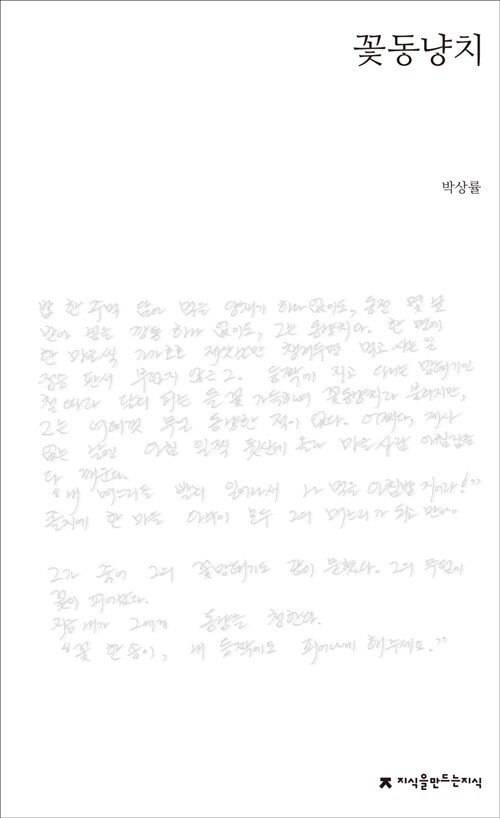 꽃동냥치
박상률
밥 한 주먹 담아 먹을 양재기 하나 없이도, 동전 몇 닢
받아 넣을 깡통 하나 없이도, 그는 동냥치다. 한 면에
한 마을씩 가가호호 제삿날만 챙겨두면 먹고 사는 일
정승 판서 부럽지 않은 그. 등짝에 지고 다니는 망태기엔
철 따라 달리 피는 들꽃 가득하여 꽃동냥치라 불리지만,
그는 여태껏 무얼 동냥한 적이 없다. 어쩌다, 제사
없는 날엔 아침 일찍 뒷산에 올라 마을 사람 아침잠을
다 깨운다.
“내 며느리들 빨리 일어나서 나 먹을 아침밥 지어라!”
졸지에 한 마을 아낙이 모두 그의 며느리가 되고 만다.
그가 죽어 그의 꽃망태기도 같이 묻혔다. 그의 무덤에
꽃이 피어났다.
지금 내가 그에게 동냥을 청한다.
“꽃 한 송이, 내 등짝에도 피어나게 해주세요.”
지식을만드는지식